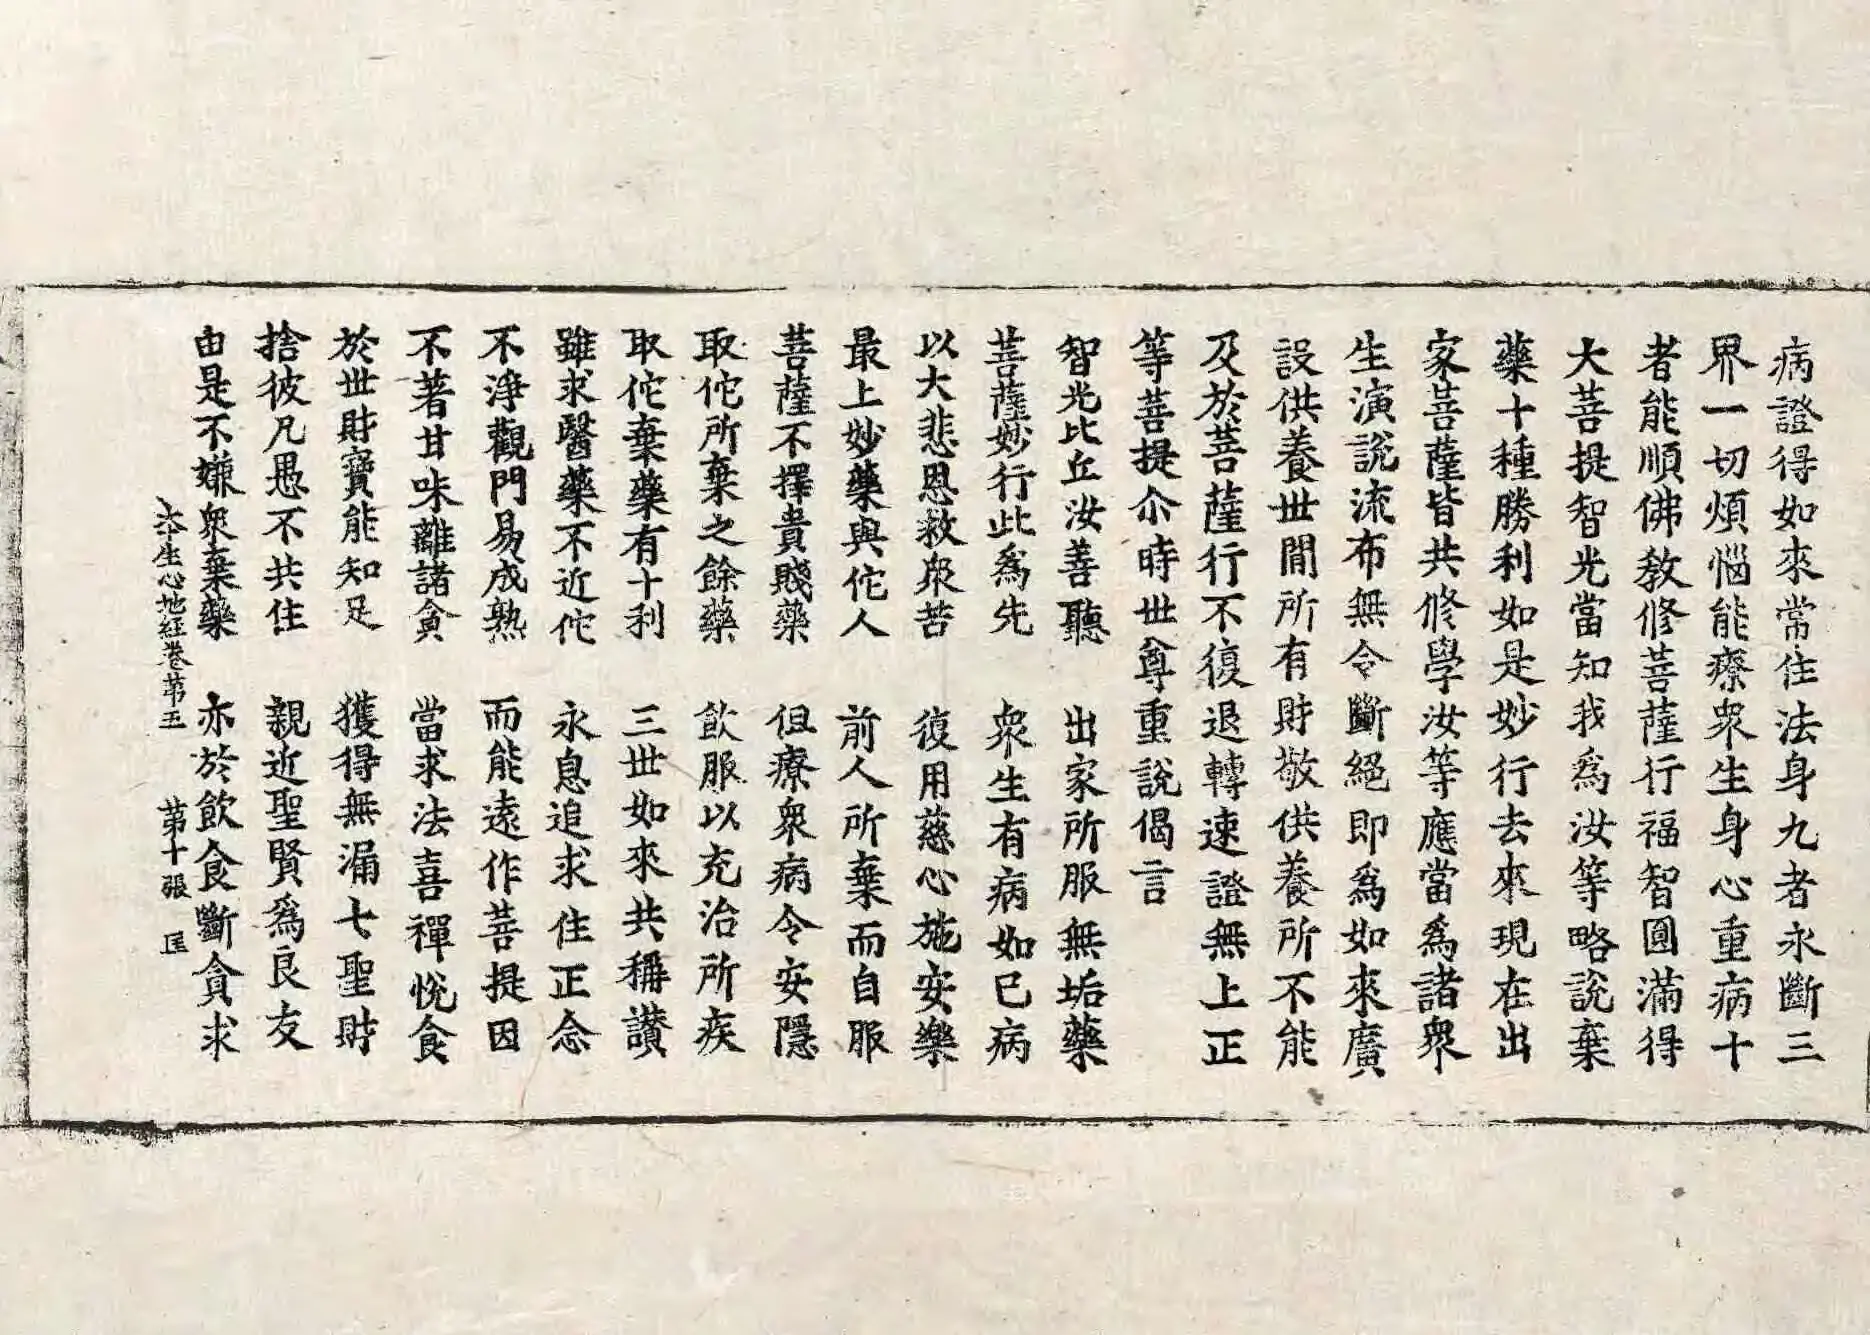 病證得如來常住法身九者永斷三
界一切煩惱能療衆生身心重病十
者能順佛教修菩薩行福智圓滿得
大菩提智光當知我爲汝等略說棄
藥十種勝利如是妙行去來現在出
家菩薩皆共修學汝等應當爲諸衆
生演說流布無令斷絕即爲如來廣
設供養世間所有財敬供養所不能
及於菩薩行不復退轉速證無上正
等菩提尒時世尊重說偈言
智光比丘汝善聽 出家所服無垢藥
菩薩妙行此爲先 衆生有病如已病
以大悲恩救衆苦 復用慈心施安樂
最上妙藥與佗人 前人所棄而自服
菩薩不擇貴賤藥 但療衆病令安隱
取佗所棄之餘藥 飲服以充治所疾
取佗棄藥有十利 三世如來共稱讃
雖求醫藥不近佗 永息追求住正念
不淨觀門易成熟 而能遠作菩提因
不著甘味離諸貪 當求法喜禪悅食
於世財寶能知足 獲得無漏七聖財
捨彼凡愚不共住 親近聖賢爲良友
由是不嫌衆棄藥 亦於飲食斷貪求
生心地經卷苐五 苐十張 匡